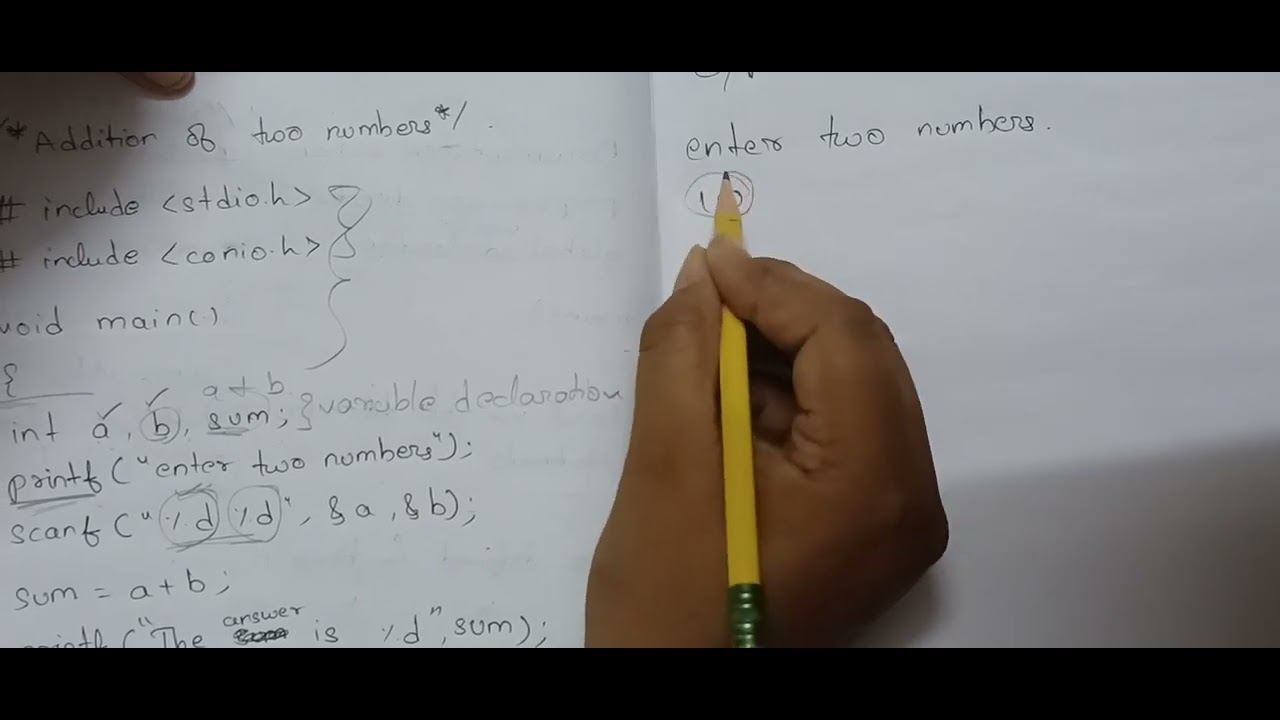 /*Addition of two numbers*/.
# include <stdio.h>
# include <conio.h>
void main()
{
a + b
int a, b, sum; } variable declaration
printf ("enter two numbers");
scanf ("%d %d", &a, &b);
sum = a+b;
answer
printf ("The is %d", sum);
enter two numbers.